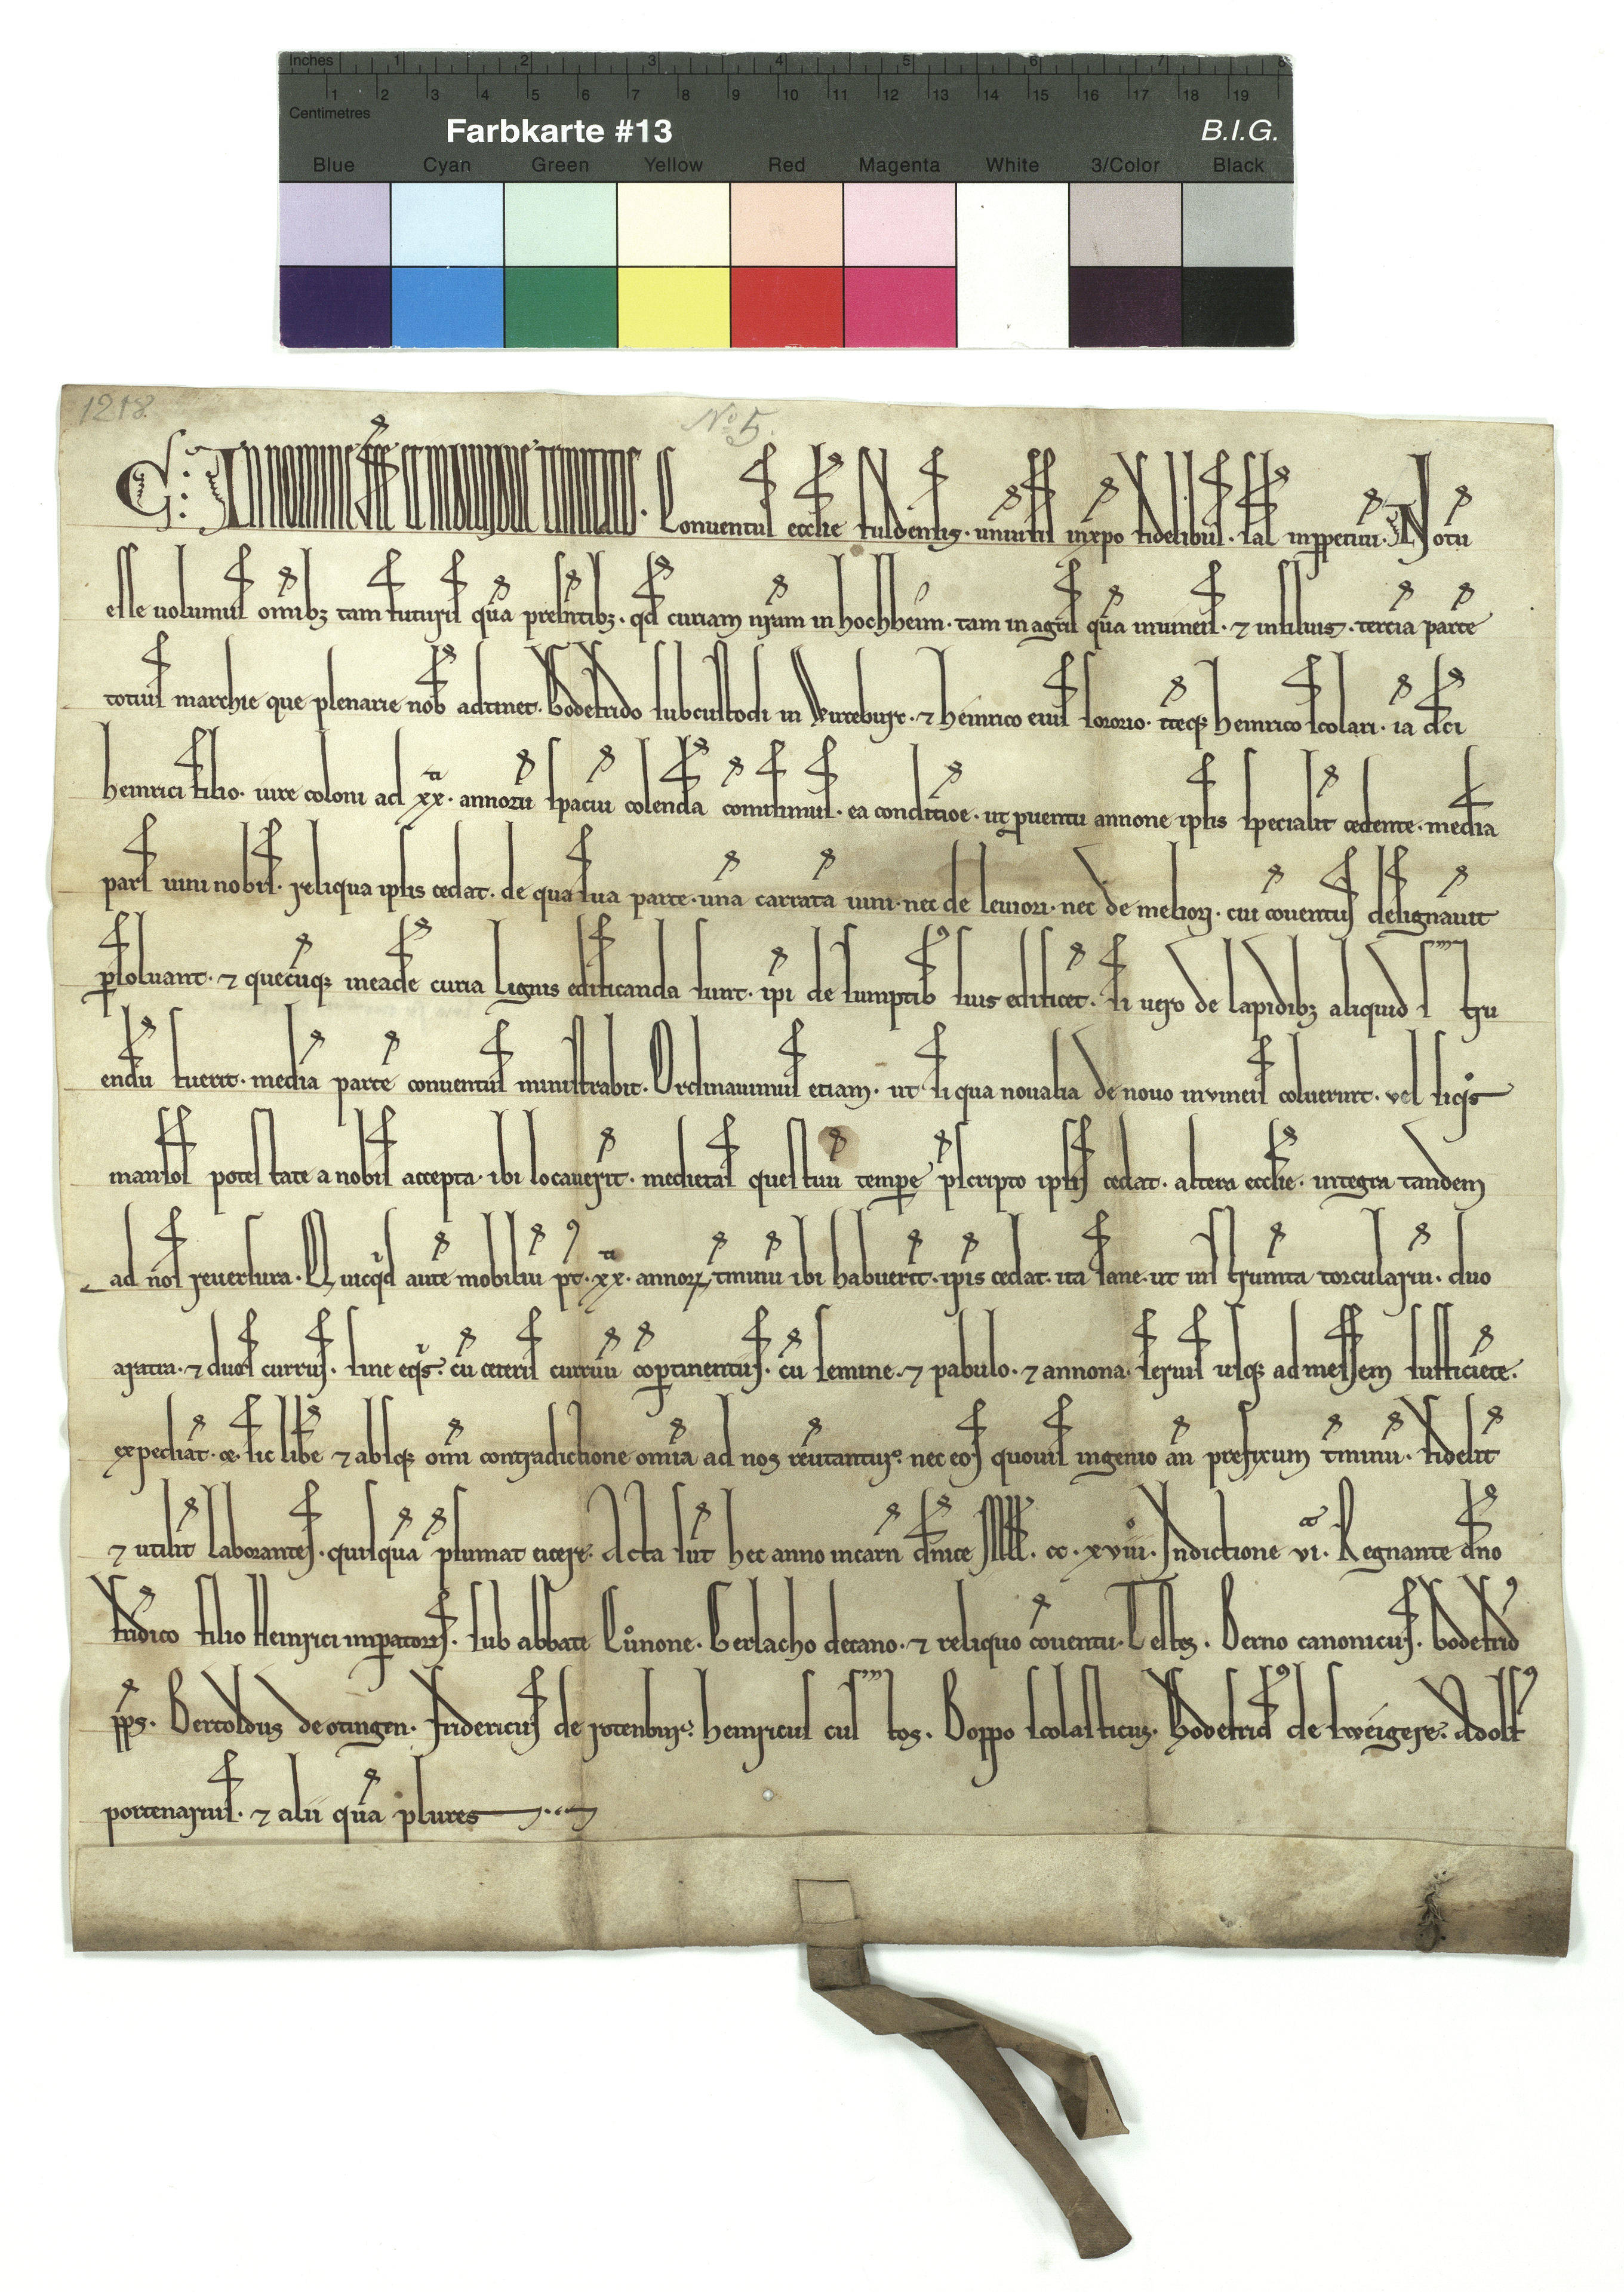 Inches 1 2 3 4 5 6 7 8
1 2 3 4 5 6 7 8 9 10 11 12 13 14 15 16 17 18 19
Centimetres
Farbkarte #13 B.I.G.
Blue Cyan Green Yellow Red Magenta White 3/Color Black
1218. No 5.
C. In nomine sce et individue trinitatis. Conuentus ecclie fuldensis. uniusis in xpo fidelibus. sal inppetuu. Notu
esse uolumus omibz tam futuris qua presentibz. qd curiam nram in hochheim. tam in agris qua inuineis. & insiluis. tercia parte
totius marchie que plenarie nob adtinet. Bodefrido subcustodi in Wirceburc. & heinrico eius sororio. iteqz heinrico scolari. ia dci
heinrici filio. iure coloni ad xx. annoru spaciu colenda comisimus. ea conditioe. ut puentu annone ipsis specialit cedente. media
pars uini nobis. reliqua ipsis cedat. de qua sua parte. una carrata uini. nec de leuiori. nec de meliori. cui couentus designauit
psoluant. & quecuqz ineade curia lignis edificanda sunt. ipi de sumptib suis edificet. si uero de lapidibz aliquid s tru
endu fuerit. media parte conuentus ministrabit. Ordinauimus etiam. ut si qua noualia de nouo inuineis coluerint. vel siqs
mansos potes tate a nobis accepta. ibi locauerit. medietas questuu tempe pscripto ipsis cedat. altera ecclie. integra tandem
ad nos reuersura. Quicqd aute mobiliu pt. xx. annorz tminu ibi habuerit. ipis cedat. ita sane. ut ins trumta torculariu. duo
aratra. & duos currus. sine eqis. cu ceteris curruu coptinentiis. cu semine. & pabulo. & annona. seruis usqz ad messem sufficiete.
expediat. & sic libe & absqz omi contradictione omia ad nos reutantur. nec eos quouis ingenio an prefixum tminu. fidelit
& utilit laborantes. quisqua psumat eicere. Acta sut hec anno incarn dnice M. cc. xviii. Indictione vi. Regnante dno
fridico filio Heinrici impatoris. sub abbate Cunone. Gerlacho decano. & reliquo couentu. Testes. Berno canonicus. Godefrid
pps. Bertoldus de otingen. Fridericus de rotenburc. heinricus cus tos. Boppo scolasticus. Godefrid de sweigere. Adolf
portenarius. & alii qua plures